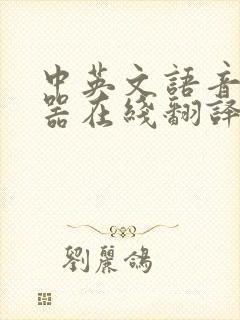 中英文語音
器在綫翻譯
劉麗鴿